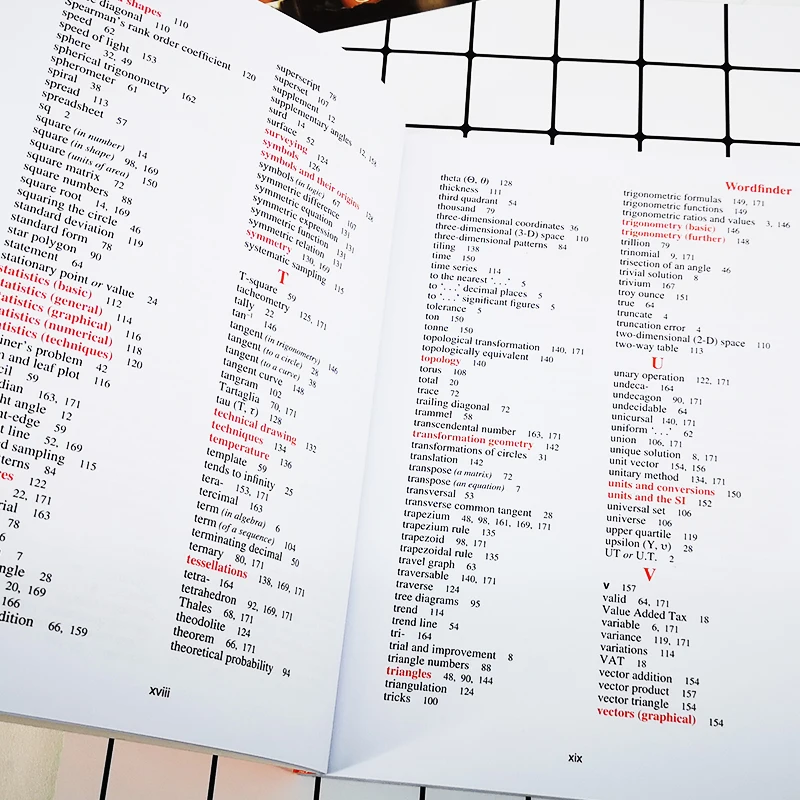 shapes 110
diagonal 110
Spearman's rank order coefficient 120
speed 62
speed of light 153
sphere 32, 49
spherical trigonometry 162
spherometer 61
spiral 38
spread 113
spreadsheet 57
sq 2
square (in number) 14
square (in shape) 98, 169
square (units of area) 150
square matrix 72
square numbers 88
square root 14, 169
squaring the circle 46
standard deviation 119
standard form 78
star polygon 90
statement 64
stationary point or value 24
statistics (basic) 112
statistics (general) 114
statistics (graphical) 116
statistics (numerical) 118
statistics (techniques) 120
iner's problem 42
n and leaf plot 116
cil 59
dian 163, 171
ght angle 12
t-edge 59
t line 52, 169
ed sampling 115
terns 84
es 122
22, 171
rial 163
78
6
7
ngle 28
20, 169
166
dition 66, 159
superscript 78
superset 107
supplement 12
supplementary angles 12, 156
surd 14
surface 52
surveying 124
symbols 126
symbols and their origins 128
symbols (in logic) 67
symmetric difference 107
symmetric equation 131
symmetric expression 131
symmetric function 131
symmetric relation 131
symmetry 130, 169
systematic sampling 115
T
T-square 59
tacheometry 125, 171
tally 22
tan 146
tangent (in trigonometry) 146
tangent (to a circle) 28
tangent (to a curve) 38
tangent curve 148
tangram 102
Tartaglia 70, 171
tau (T, τ) 128
technical drawing 132
techniques 134
temperature 136
template 59
tends to infinity 25
tera- 153, 171
tercimal 163
term (in algebra) 6
term (of a sequence) 104
terminating decimal 50
ternary 80, 171
tessellations 138, 169, 171
tetra- 164
tetrahedron 92, 169, 171
Thales 68, 171
theodolite 124
theorem 66, 171
theoretical probability 94
xviii
Wordfinder
theta (Θ, θ) 128
thickness 111
third quadrant 54
thousand 79
three-dimensional coordinates 36
three-dimensional (3-D) space 110
three-dimensional patterns 84
tiling 138
time 150
time series 114
to the nearest '. . .' 5
to '. . .' decimal places 5
to '. . .' significant figures 5
tolerance 5
ton 150
tonne 150
topological transformation 140, 171
topologically equivalent 140
topology 140
torus 108
total 20
trace 72
trailing diagonal 72
trammel 58
transcendental number 163, 171
transformation geometry 142
transformations of circles 31
translation 142
transpose (a matrix) 72
transpose (an equation) 7
transversal 53
transverse common tangent 28
trapezium 48, 98, 161, 169, 171
trapezium rule 135
trapezoid 98, 171
trapezoidal rule 135
travel graph 63
traversable 140, 171
traverse 124
tree diagrams 95
trend 114
trend line 54
tri- 164
trial and improvement 8
triangle numbers 88
triangles 48, 90, 144
triangulation 124
tricks 100
trigonometric formulas 149, 171
trigonometric functions 149
trigonometric ratios and values 3, 146
trigonometry (basic) 146
trigonometry (further) 148
trillion 79
trinomial 9, 171
trisection of an angle 46
trivial solution 8
trivium 167
troy ounce 151
true 64
truncate 4
truncation error 4
two-dimensional (2-D) space 110
two-way table 113
U
unary operation 122, 171
undeca- 164
undecagon 90, 171
undecidable 64
unicursal 140, 171
uniform '. . .' 62
union 106, 171
unique solution 8, 171
unit vector 154, 156
unitary method 134, 171
units and conversions 150
units and the SI 152
universal set 106
universe 106
upper quartile 119
upsilon (Υ, υ) 28
UT or U.T. 2
V
v 157
valid 64, 171
Value Added Tax 18
variable 6, 171
variance 119, 171
variations 114
VAT 18
vector addition 154
vector product 157
vector triangle 154
vectors (graphical) 154
xix